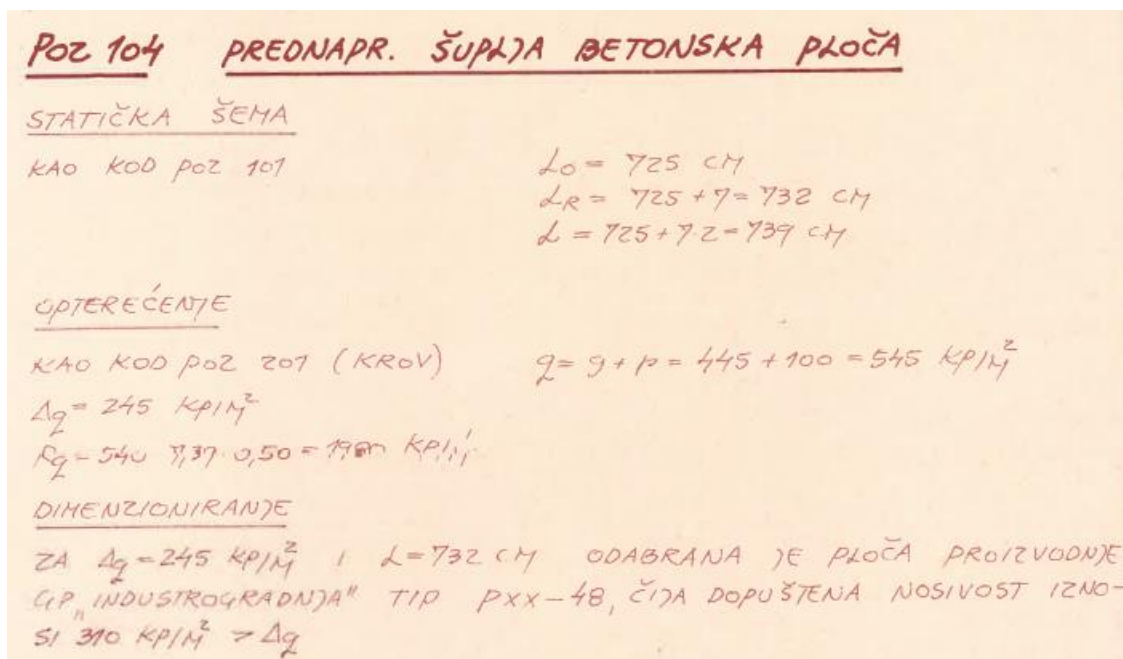 POZ 104 PREDNAPR. ŠUPLJA BETONSKA PLOČA
STATIČKA ŠEMA
KAO KOD POZ 101
L₀ = 725 CM
L_R = 725 + 7 = 732 CM
L = 725 + 7·2 = 739 CM
OPTEREĆENJE
KAO KOD POZ 201 (KROV) q = g + p = 445 + 100 = 545 KP/M²
Δq = 245 KP/M²
Rq = 540 7,37 · 0,50 =
DIMENZIONIRANJE
ZA Δq = 245 KP/M² I L = 732 CM ODABRANA JE PLOČA PROIZVODNJE
GP „INDUSTROGRADNJA" TIP PXX-48, ČIJA DOPUŠTENA NOSIVOST IZNO-
SI 310 KP/M² > Δq